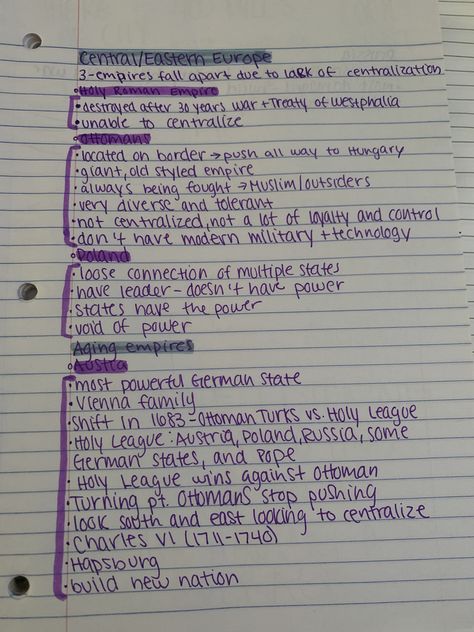 Central/Eastern Europe
3-empires fall apart due to lack of centralization
Holy Roman Empire
• destroyed after 30 years war + Treaty of Westphalia
• unable to centralize
Ottomans
• located on border → push all way to Hungary
• giant, old styled empire
• always being fought → Muslim/outsiders
• very diverse and tolerant
• not centralized, not a lot of loyalty and control
• don't have modern military + technology
Poland
• loose connection of multiple states
• have leader - doesn't have power
• states have the power
• void of power
Aging empires
Austria
• most powerful German state
• Vienna family
• Shift in 1683 - Ottoman Turks vs. Holy League
• Holy League: Austria, Poland, Russia, some
German states, and Pope
• Holy League wins against Ottoman
• Turning pt. Ottomans stop pushing
• look south and east looking to centralize
• Charles VI (1711-1740)
• Hapsburg
• build new nation